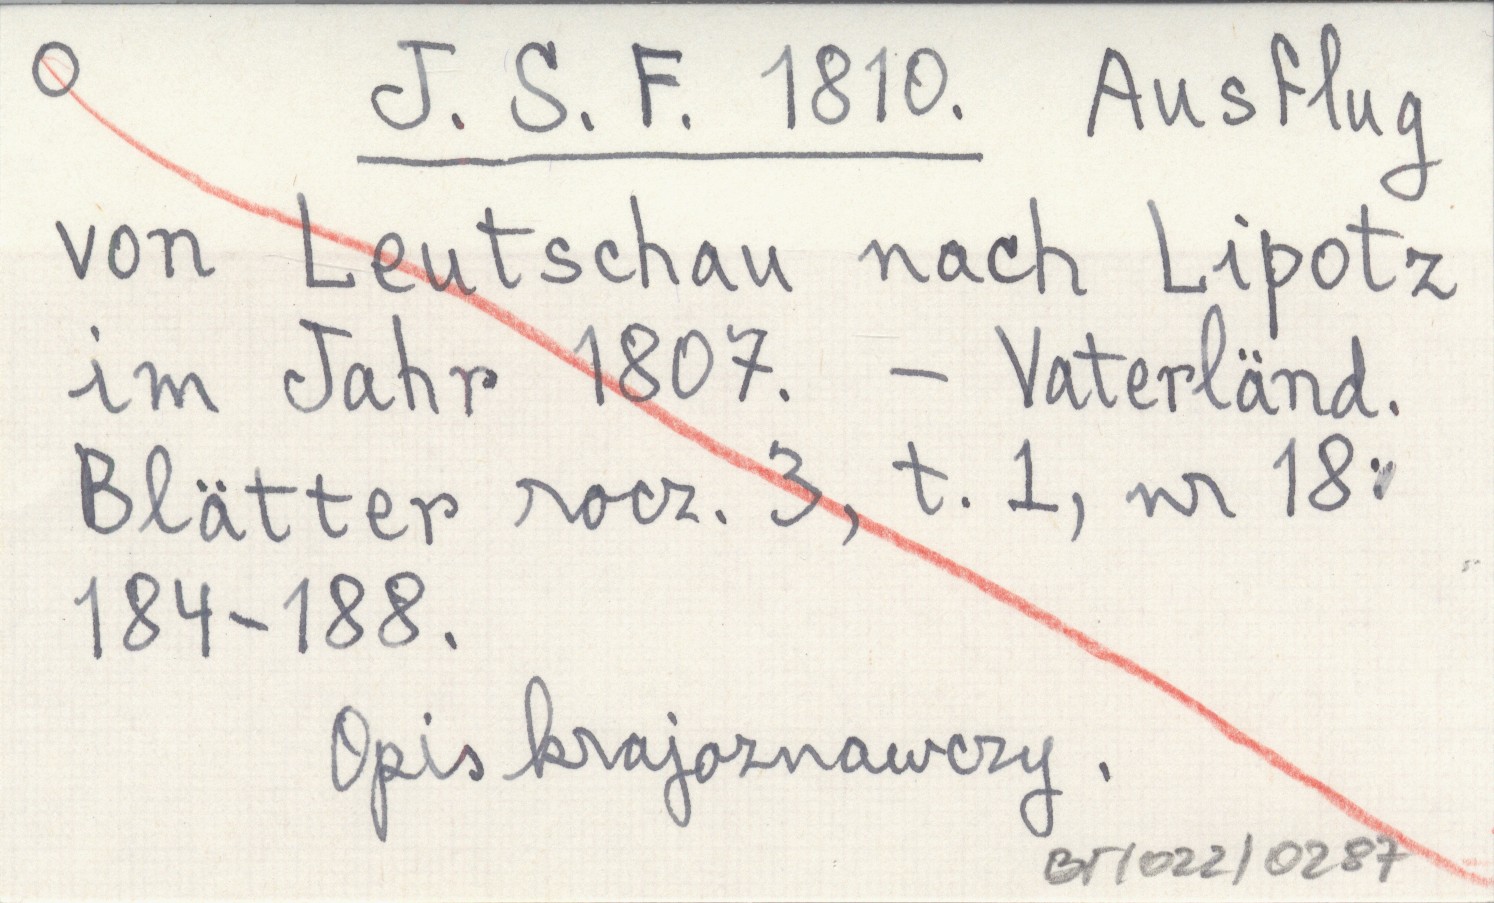 O J. S. F. 1810. Ausflug
von Leutschau nach Lipotz
im Jahr 1807. – Vaterländ.
Blätter rocz. 3, t. 1, nr 18:
184-188.
Opis krajoznawczy.
BT/022/0287